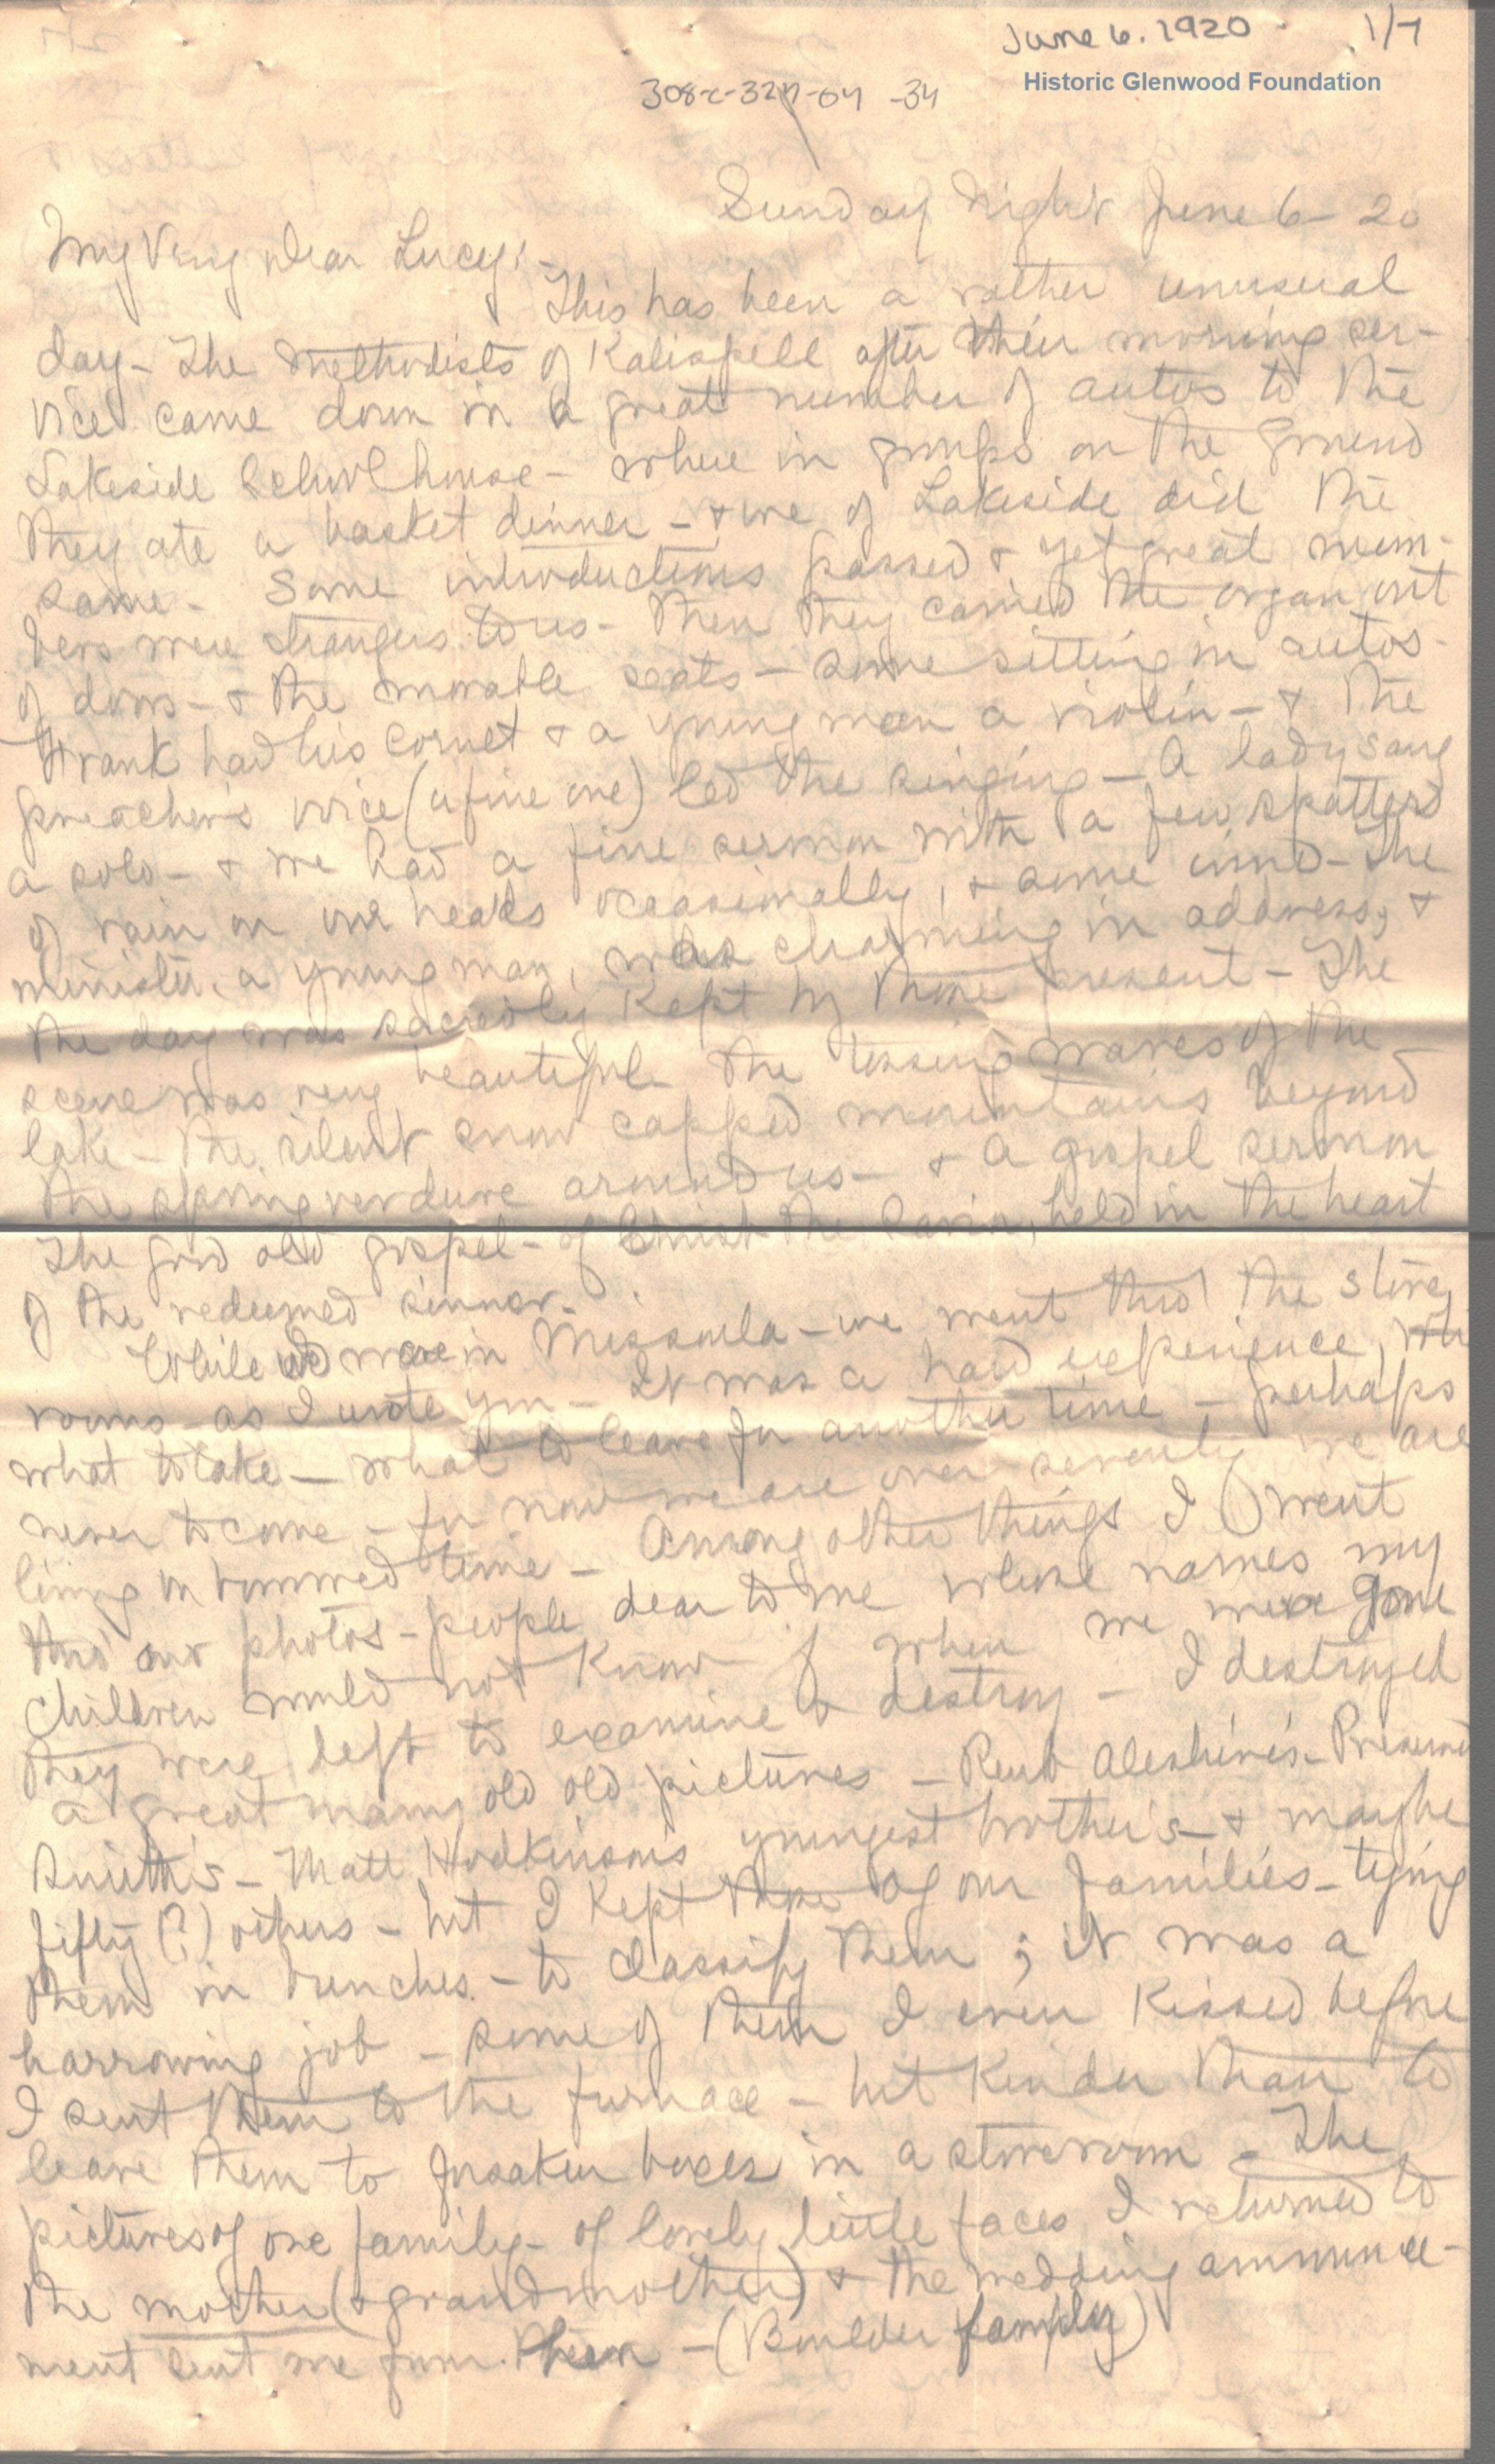 June 6. 1920 1/7
Historic Glenwood Foundation
308-c-32 -64 -34
Sunday Night June 6 - 20
My Very dear Lucy: -
This has been a rather unusual
day - The Methodists of Kalispell after their morning ser-
vice came down in a great number of autos to the
Lakeside School house - where in groups on the ground
they ate a basket dinner - & we of Lakeside did the
same - Some introductions passed & yet great num-
bers were strangers to us - Then they carried the organ out
of doors - & the movable seats - some sitting in autos -
Frank had his cornet & a young man a violin - & the
preacher's voice (a fine one) led the singing - A lady sang
a solo - & we had a fine sermon with a few spatters
of rain on our heads occasionally, & some wind - The
minister, a young man, was charming in address, &
the day was sacredly kept by those present - The
scene was very beautiful the tossing waves of the
lake - the silent snow capped mountains beyond -
the spring verdure around us - & a gospel sermon
The good old gospel - of Christ the Savior, held in the heart
of the redeemed sinner.
While we were in Missoula - we went thro' the store
rooms - as I wrote you - It was a hard experience,
what to take - what to leave for another time - perhaps
never to come - for now we are over seventy we are
living on borrowed time - Among other things I went
thro' our photos - people dear to me whose names my
children would not know if when we were gone
they were left to examine & destroy - I destroyed
a great many old old pictures - Reub Aleshire's -
Smith's - Matt Hodkinson's youngest brother's - & maybe
fifty (?) others - but I kept those of our families - tying
them in bunches - to classify them ; it was a
harrowing job - some of them I even kissed before
I sent them to the furnace - but kinder than to
leave them to forsaken boxes in a storeroom - The
pictures of one family - of lovely little faces I returned to
the mother (& grandmother) & the wedding announce-
ment sent me from them - (Boulder family)